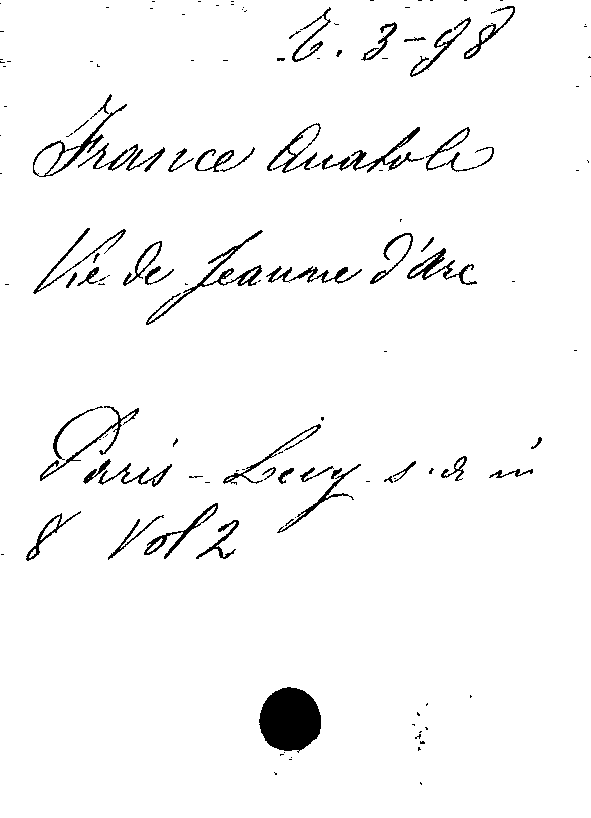 E. 3-98
France Anatole
Vie de Jeanne d'Arc
Paris - Levy s. d in
8 Vol 2